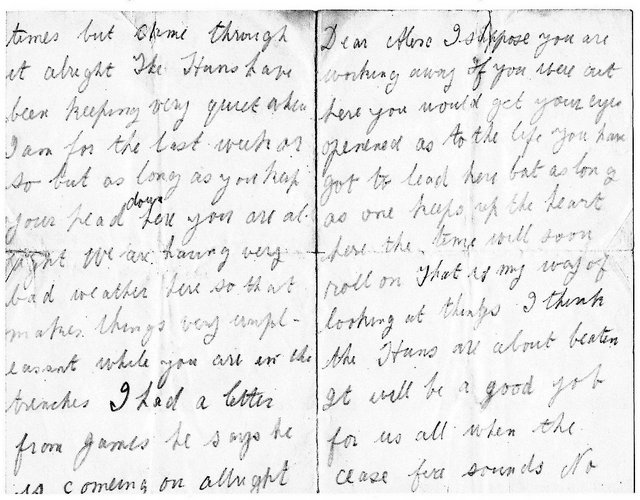 times but came through
it alright The Huns have
been keeping very quiet when
I am for the last week or
so but as long as you keep
your head down here you are al-
right We are having very
bad weather here so that
makes things very unpl-
easant while you are in the
trenches I had a letter
from James he says he
is comeing on allright
Dear Alexo I suppose you are
working away If you were out
here you would get your eyes
openened as to the life you have
got to lead here but as long
as one keeps up the heart
here the time will soon
roll on That is my way of
looking at things I think
the Huns are about beaten
It will be a good job
for us all when the
cease fire sounds No